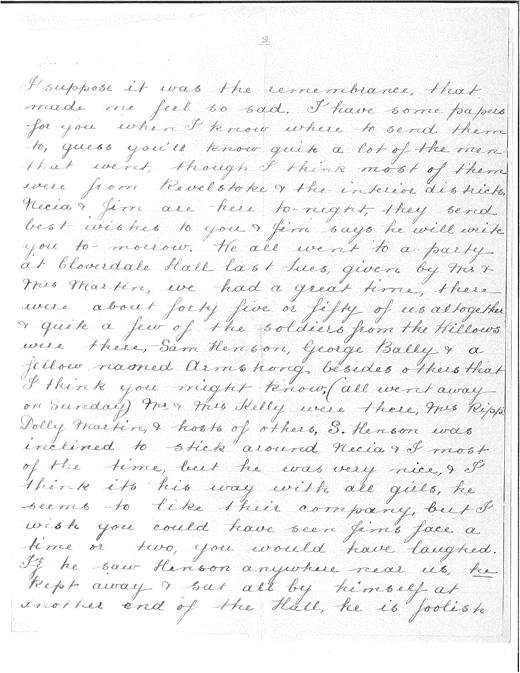 2
I suppose it was the remembrance, that
made me feel so sad. I have some papers
for you when I know where to send them
to, guess you'll know quite a lot of the men
that went, though I think most of them
were from Revelstoke & the interior districts.
Necia & Jim are here to-night, they send
best wishes to you & Jim says he will write
you to-morrow. We all went to a party
at Cloverdale Hall last Tues, given by Mr &
Mrs Martin, we had a great time, there
were about forty five or fifty of us altogether
& quite a few of the soldiers from the Willows
were there, Sam Henson, George Bally & a
fellow named Armstrong, besides others that
I think you might know, (all went away
on Sunday) Mr & Mrs Kelly were there, Mrs Ripps
Dolly Martin, & hosts of others, S. Henson was
inclined to stick around Necia & I most
of the time, but he was very nice, & I
think its his way with all girls, he
seems to like their company, but I
wish you could have seen Jims face a
time or two, you would have laughed.
If he saw Henson anywhere near us, he
kept away & sat all by himself at
another end of the Hall, he is foolish